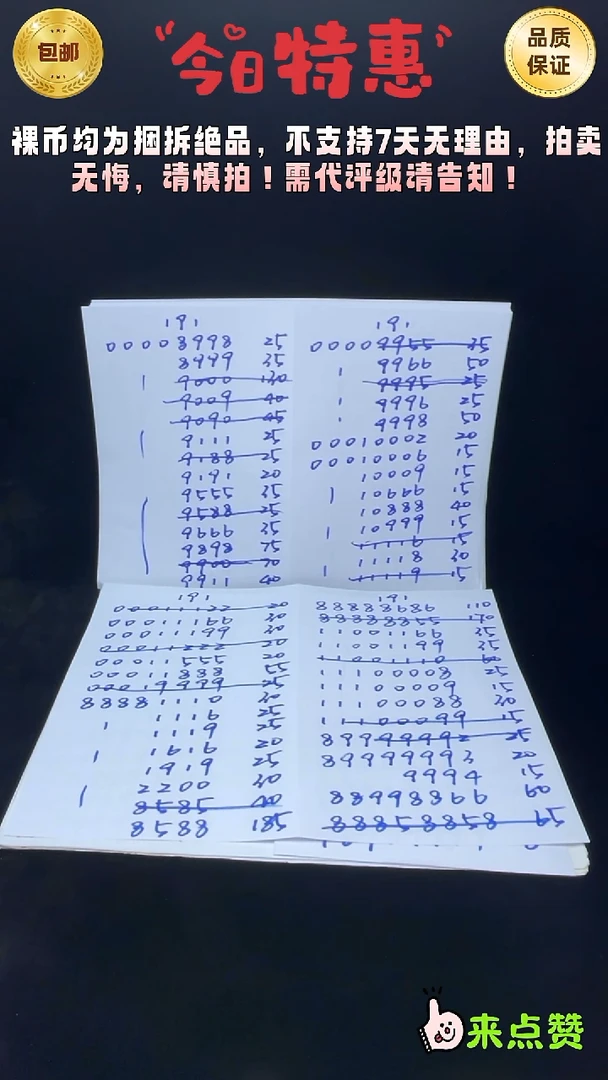 包邮
今日特惠
品质
保证
裸币均为捆拆绝品，不支持7天无理由，拍卖
无悔，请慎拍！需代评级请告知！
191
00008998 25
8999 35
9000 130
9009 40
9090 45
9111 25
9188 25
9191 20
9555 35
9588 25
9666 35
9898 75
9900 70
9911 40
191
00009955 35
9966 50
9995 25
9996 25
9998 50
00010002 20
00010006 15
10009 15
10666 15
10888 40
10999 15
11116 15
11118 30
11119 15
191
00011122 20
00011166 30
00011199 30
00011222 20
00011555 20
00011888 55
00019999 25
88881110 30
1116 25
1119 25
1616 20
1919 25
2200 30
8585 40
8588 185
191
88888686 110
88888855 170
11001166 35
11001199 35
11001110 60
11100008 25
11100009 15
11100088 30
11100099 15
89999992 25
89999993 20
9994 15
88998866 60
88858858 59
来点赞